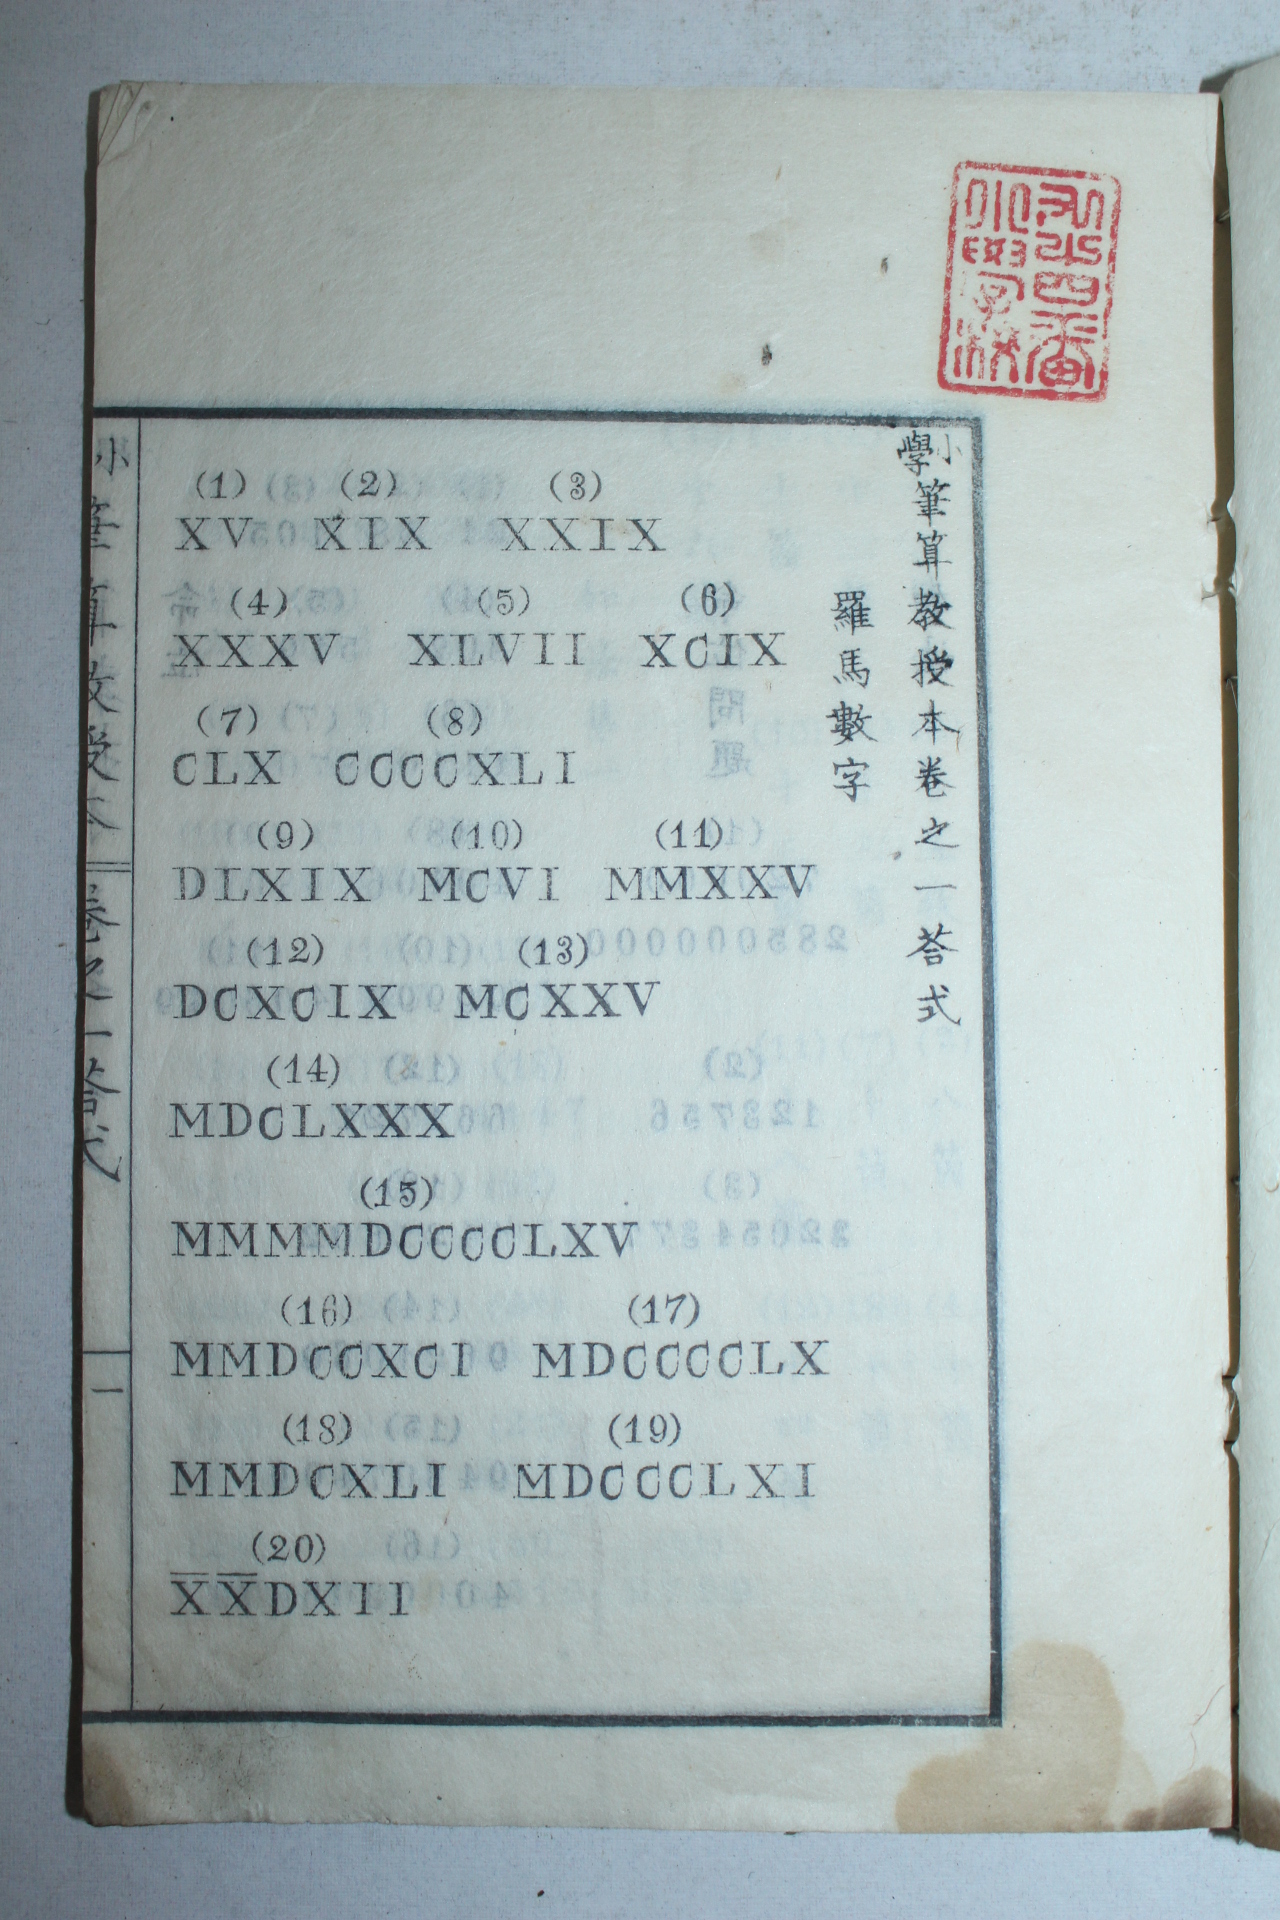 小學筆算教授本卷之一荅式
羅馬數字
(1) (2) (3)
XV XIX XXIX
(4) (5) (6)
XXXV XLVII XCIX
(7) (8)
CLX CCCCXLI
(9) (10) (11)
DLXIX MCVI MMXXV
(12) (13)
DCXCIX MCXXV
(14)
MDCLXXX
(15)
MMMMDCCCCLXV
(16) (17)
MMDCCXCI MDCCCCLX
(18) (19)
MMDCXLI MDCCCLXI
(20)
X̅X̅DXII
小筆算教授本
卷之一荅式
一